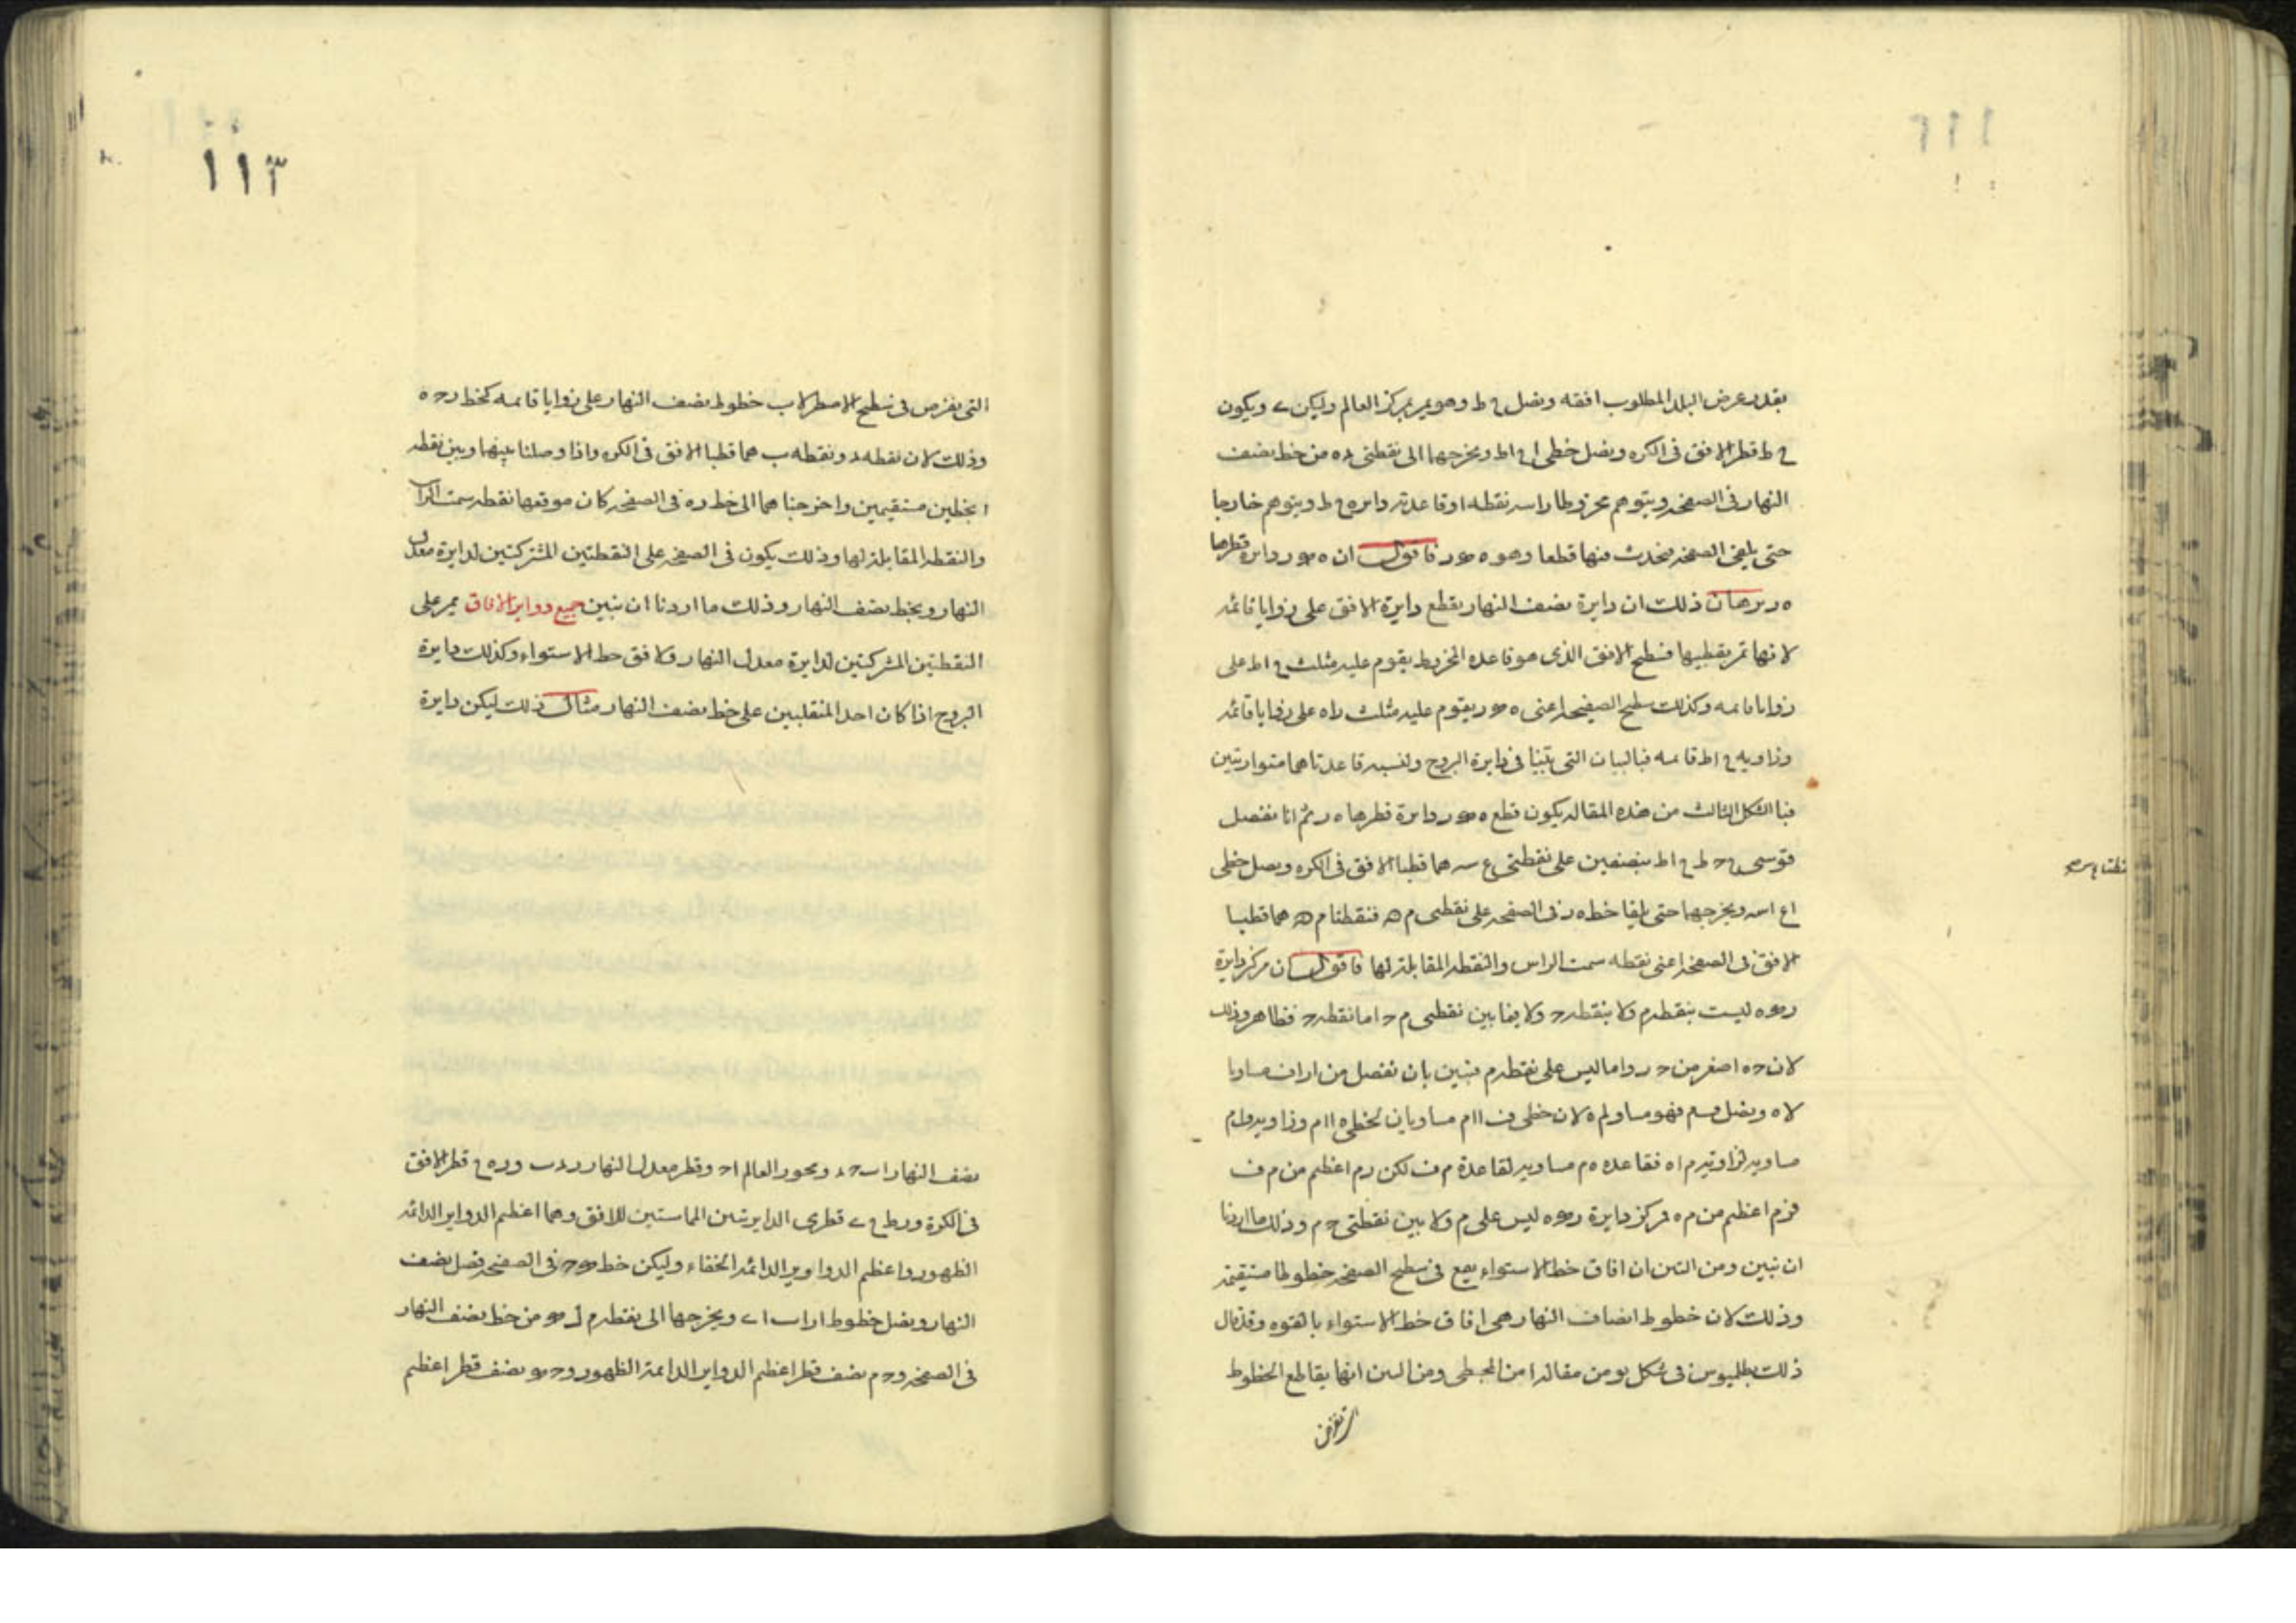 بقدر عرض البلد المطلوب افقه ونصل ح ط وهو يمر بمركز العالم وليكن ى ويكون
ح ط قطر الافق فى الكره ونصل خطى ا ح ا ط ونخرجهما الى نقطتى ر ه من خط نصف
النهار فى الصفحه ويتوهم مخروطا راسه نقطه ا وقاعدته دايره ح ط ويتوهم خارجا
حتى يلقى الصفحه فيحدث منها قطعا وهو ه ر فاقول ان ه ر دايرة قطرها
ه ر برهان ذلك ان دايرة نصف النهار يقطع دايرة الافق على زوايا قائمه
لانها تمر بقطبيها فسطح الافق الذى هو قاعده المخروط يقوم عليه مثلث ح ا ط على
زوايا قايمه وكذلك سطح الصفيحه اعنى ه ر يقوم عليه مثلث ر ا ه على زوايا قائمه
وزاويه ح ا ط قايمه فبالبيان التى بيّنا فى دايرة البروج ولنسبه قاعدتاهما متوازيتين
فبا الشكل الثالث من هذه المقاله يكون قطع ه ر دايرة قطرها ه ر ثم انا نفصل
قوسى ح ط ح ا ط بنصفين على نقطتى ع س هما قطبا الافق فى الكره ونصل خطى
ا ع ا س ونخرجهما حتى يلقيا خط ه ر فى الصفحه على نقطتى م ه فنقطتا م ه هما قطبا
الافق فى الصفحه اعنى نقطه سمت الراس والنقطه المقابله لها فاقول ان مركز دايرة
ر ه ليست بنقطه م ولا بنقطه ح ولا فيما بين نقطتى م ح اما نقطه ح فظاهر وذلك
لان ح ه اصغر من ح ر واما ليس على نقطه م فنبين بان نفصل من ا ر ا ف مساويا
لا ه ونصل ف م فهو مساو لم ه لان خطى ف ا ا م مساويان لخطى ه ا ا م وزاويه ف ا م
مساويه لزاويه م ا ه فقاعده ه م مساويه لقاعدة م ف لكن ر م اعظم من م ف
فر م اعظم من م ه فمركز دايرة ر ه ليس على م ولا بين نقطتى ح م وذلك ما اردنا
ان نبين ومن البين ان افاق خط الاستواء يقع فى سطح الصفحه خطوطا مستقيمه
وذلك لان خطوط انصاف النهار هى افاق خط الاستواء بالقوه وقد قال
ذلك بطلميوس فى شكل يو من مقاله ا من المجسطى ومن البين انها يقاطع الخطوط
التى تفرض
التى يفرض فى سطح الاصطرلاب خطوط نصف النهار على زوايا قايمه كخط ر ح ه
وذلك لان نقطه د ونقطه ب هما قطبا الافق فى الكره واذا وصلنا بينهما وبين نقطه
ا بخطين مستقيمين واخرجنا هما الى خط ر ه فى الصفحه كان موقعهما نقطه سمت الراس
والنقطه المقابله لها وذلك يكون فى الصفحه على النقطتين المشتركتين لدايرة معدل
النهار وبخط نصف النهار وذلك ما اردنا ان نبين جميع دواير الافاق يمر على
النقطتين المشتركتين لدايرة معدل النهار ولافق خط الاستواء وكذلك دايرة
البروج اذا كان احد المنقلبين على خط نصف النهار مثال ذلك ليكن دايرة
نصف النهار ا ب ح د ومحور العالم ا ح وقطر معدل النهار د ب و ر ه ح قطر الافق
فى الكرة و ر ط ح ى قطرى الدايرتين المماستين للافق وهما اعظم الدواير الدائمه
الظهور واعظم الدواوير الدائمه الخفاء وليكن خط ح فى الصفحه فصل نصف
النهار ونصل خطوط ا ر ا ب ا ى ونخرجها الى نقطه م ل من خط نصف النهار
فى الصفحه و ح م نصف قطر اعظم الدواير الدايمة الظهور و ح نصف قطر اعظم
١١٣